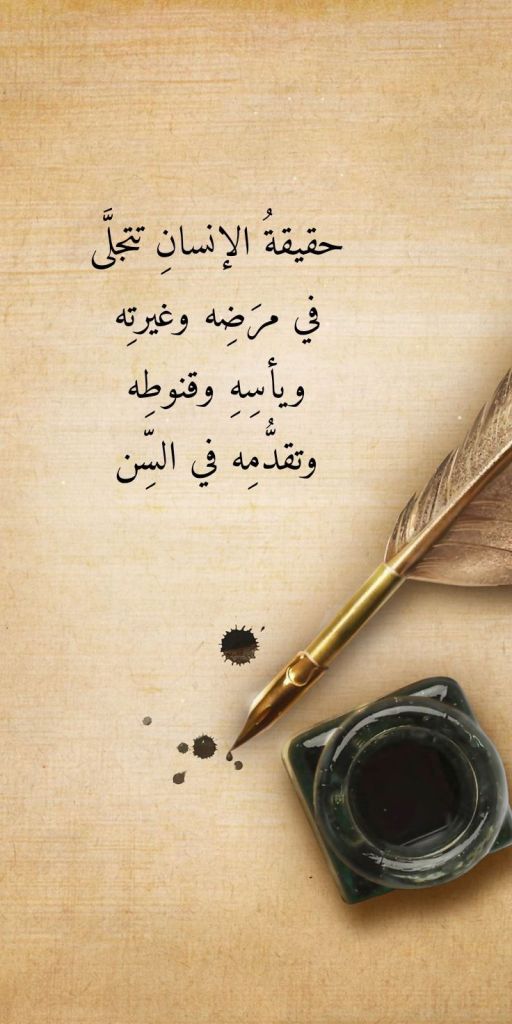 حقيقةُ الإنسانِ تتجلَّى
في مرَضِه وغيرتِه
ويأسِهِ وقنوطِه
وتقدُّمِه في السِّن